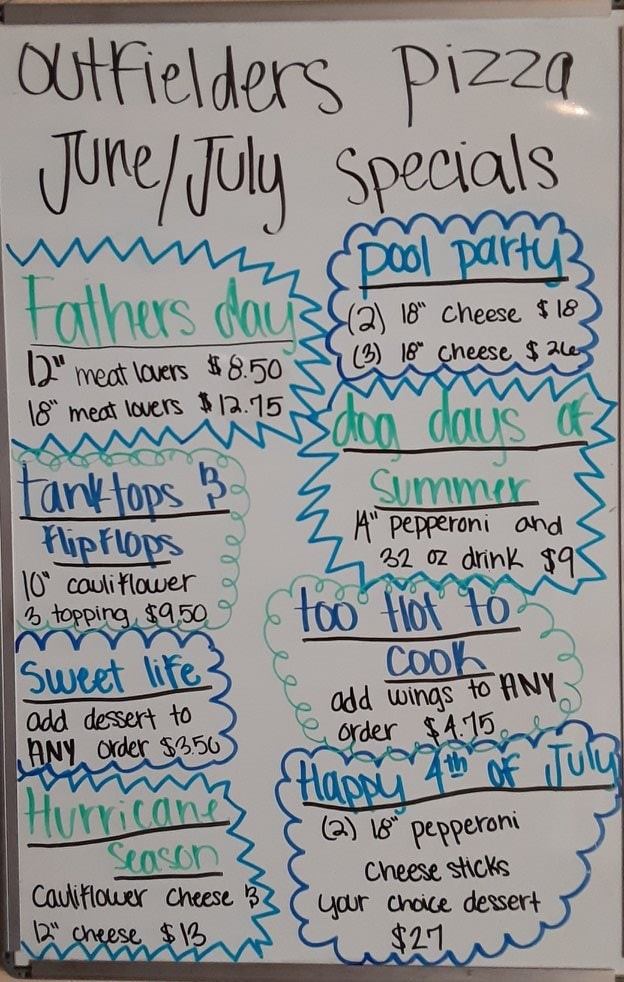 Outfielders Pizza
June/July Specials
Fathers day
12" meat lovers $8.50
18" meat lovers $12.75
pool party
(2) 18" cheese $18
(3) 18" cheese $26
dog days of
Summer
14" pepperoni and
32 oz drink $9
tanktops &
flipflops
10" cauliflower
3 topping $9.50
too Hot to
cook
add wings to ANY
order $4.75
Sweet life
add dessert to
ANY order $3.50
Happy 4th of July
(2) 18" pepperoni
cheese sticks
your choice dessert
$27
Hurricane
Season
Cauliflower cheese &
12" cheese $13